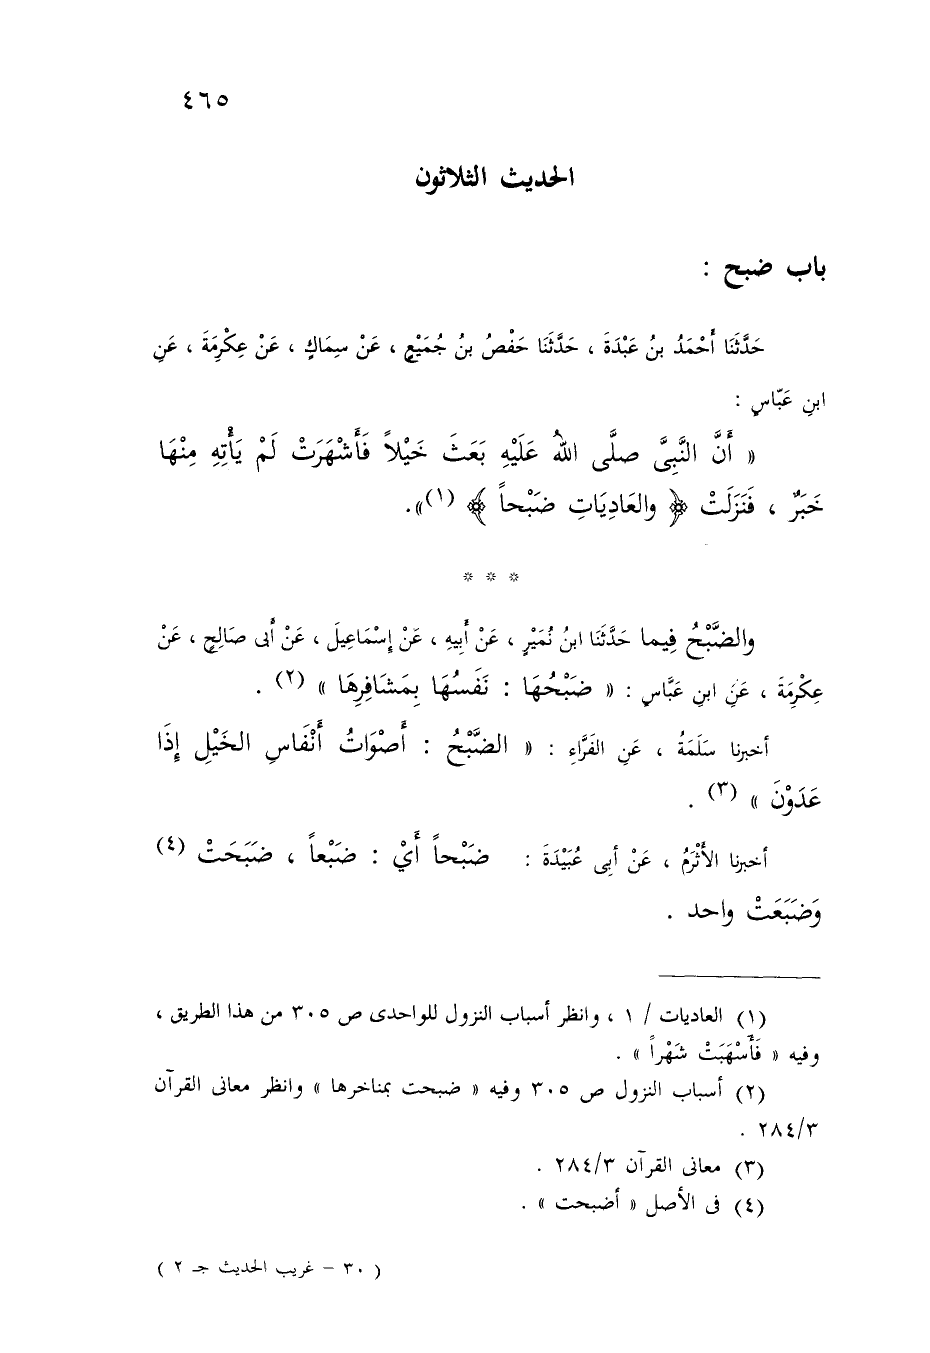 ٤٦٥
الحديث الثلاثون
باب ضبح :
حَدَّثَنَا أَحْمَدُ بنُ عَبْدَةَ ، حَدَّثَنَا حَفْصُ بنُ جُمَيْعٍ ، عَنْ سِمَاكٍ ، عَنْ عِكْرِمَةَ ، عَنِ
ابنِ عَبّاسٍ :
« أَنَّ النَّبِىَّ صلَّى اللهُ عَلَيْهِ بَعَثَ خَيْلاً فَأَشْهَرَتْ لَمْ يَأْتِهِ مِنْهَا
خَبَرٌ ، فَنَزَلَتْ ﴿ والعَادِيَاتِ ضَبْحاً ﴾ (١)».
* * *
والضَّبْحُ فِيما حَدَّثَنَا ابنُ نُمَيْرٍ ، عَنْ أَبِيهِ ، عَنْ إِسْمَاعِيلَ ، عَنْ أَبى صَالِحٍ ، عَنْ
عِكْرِمَةَ ، عَنِ ابنِ عَبَّاسٍ : « ضَبْحُهَا : نَفَسُهَا بِمَشَافِرِهَا » (٢) .
أخبرنا سَلَمَةُ ، عَنِ الفَرَّاءِ : « الضَّبْحُ : أَصْوَاتُ أَنْفَاسِ الخَيْلِ إِذَا
عَدَوْنَ » (٣) .
أخبرنا الأَثْرَمُ ، عَنْ أبى عُبَيْدَةَ : ضَبْحاً أَيْ : ضَبْعاً ، ضَبَحَتْ (٤)
وَضَبَعَتْ واحد .
(١) العاديات / ١ ، وانظر أسباب النزول للواحدى ص ٣٠٥ من هذا الطريق ،
وفيه « فَأَسْهَبَتْ شَهْراً » .
(٢) أسباب النزول ص ٣٠٥ وفيه « ضبحت بمناخرها » وانظر معانى القرآن
٢٨٤/٣ .
(٣) معانى القرآن ٢٨٤/٣ .
(٤) فى الأصل « أضبحت » .
( ٣٠ – غريب الحديث جـ ٢ )